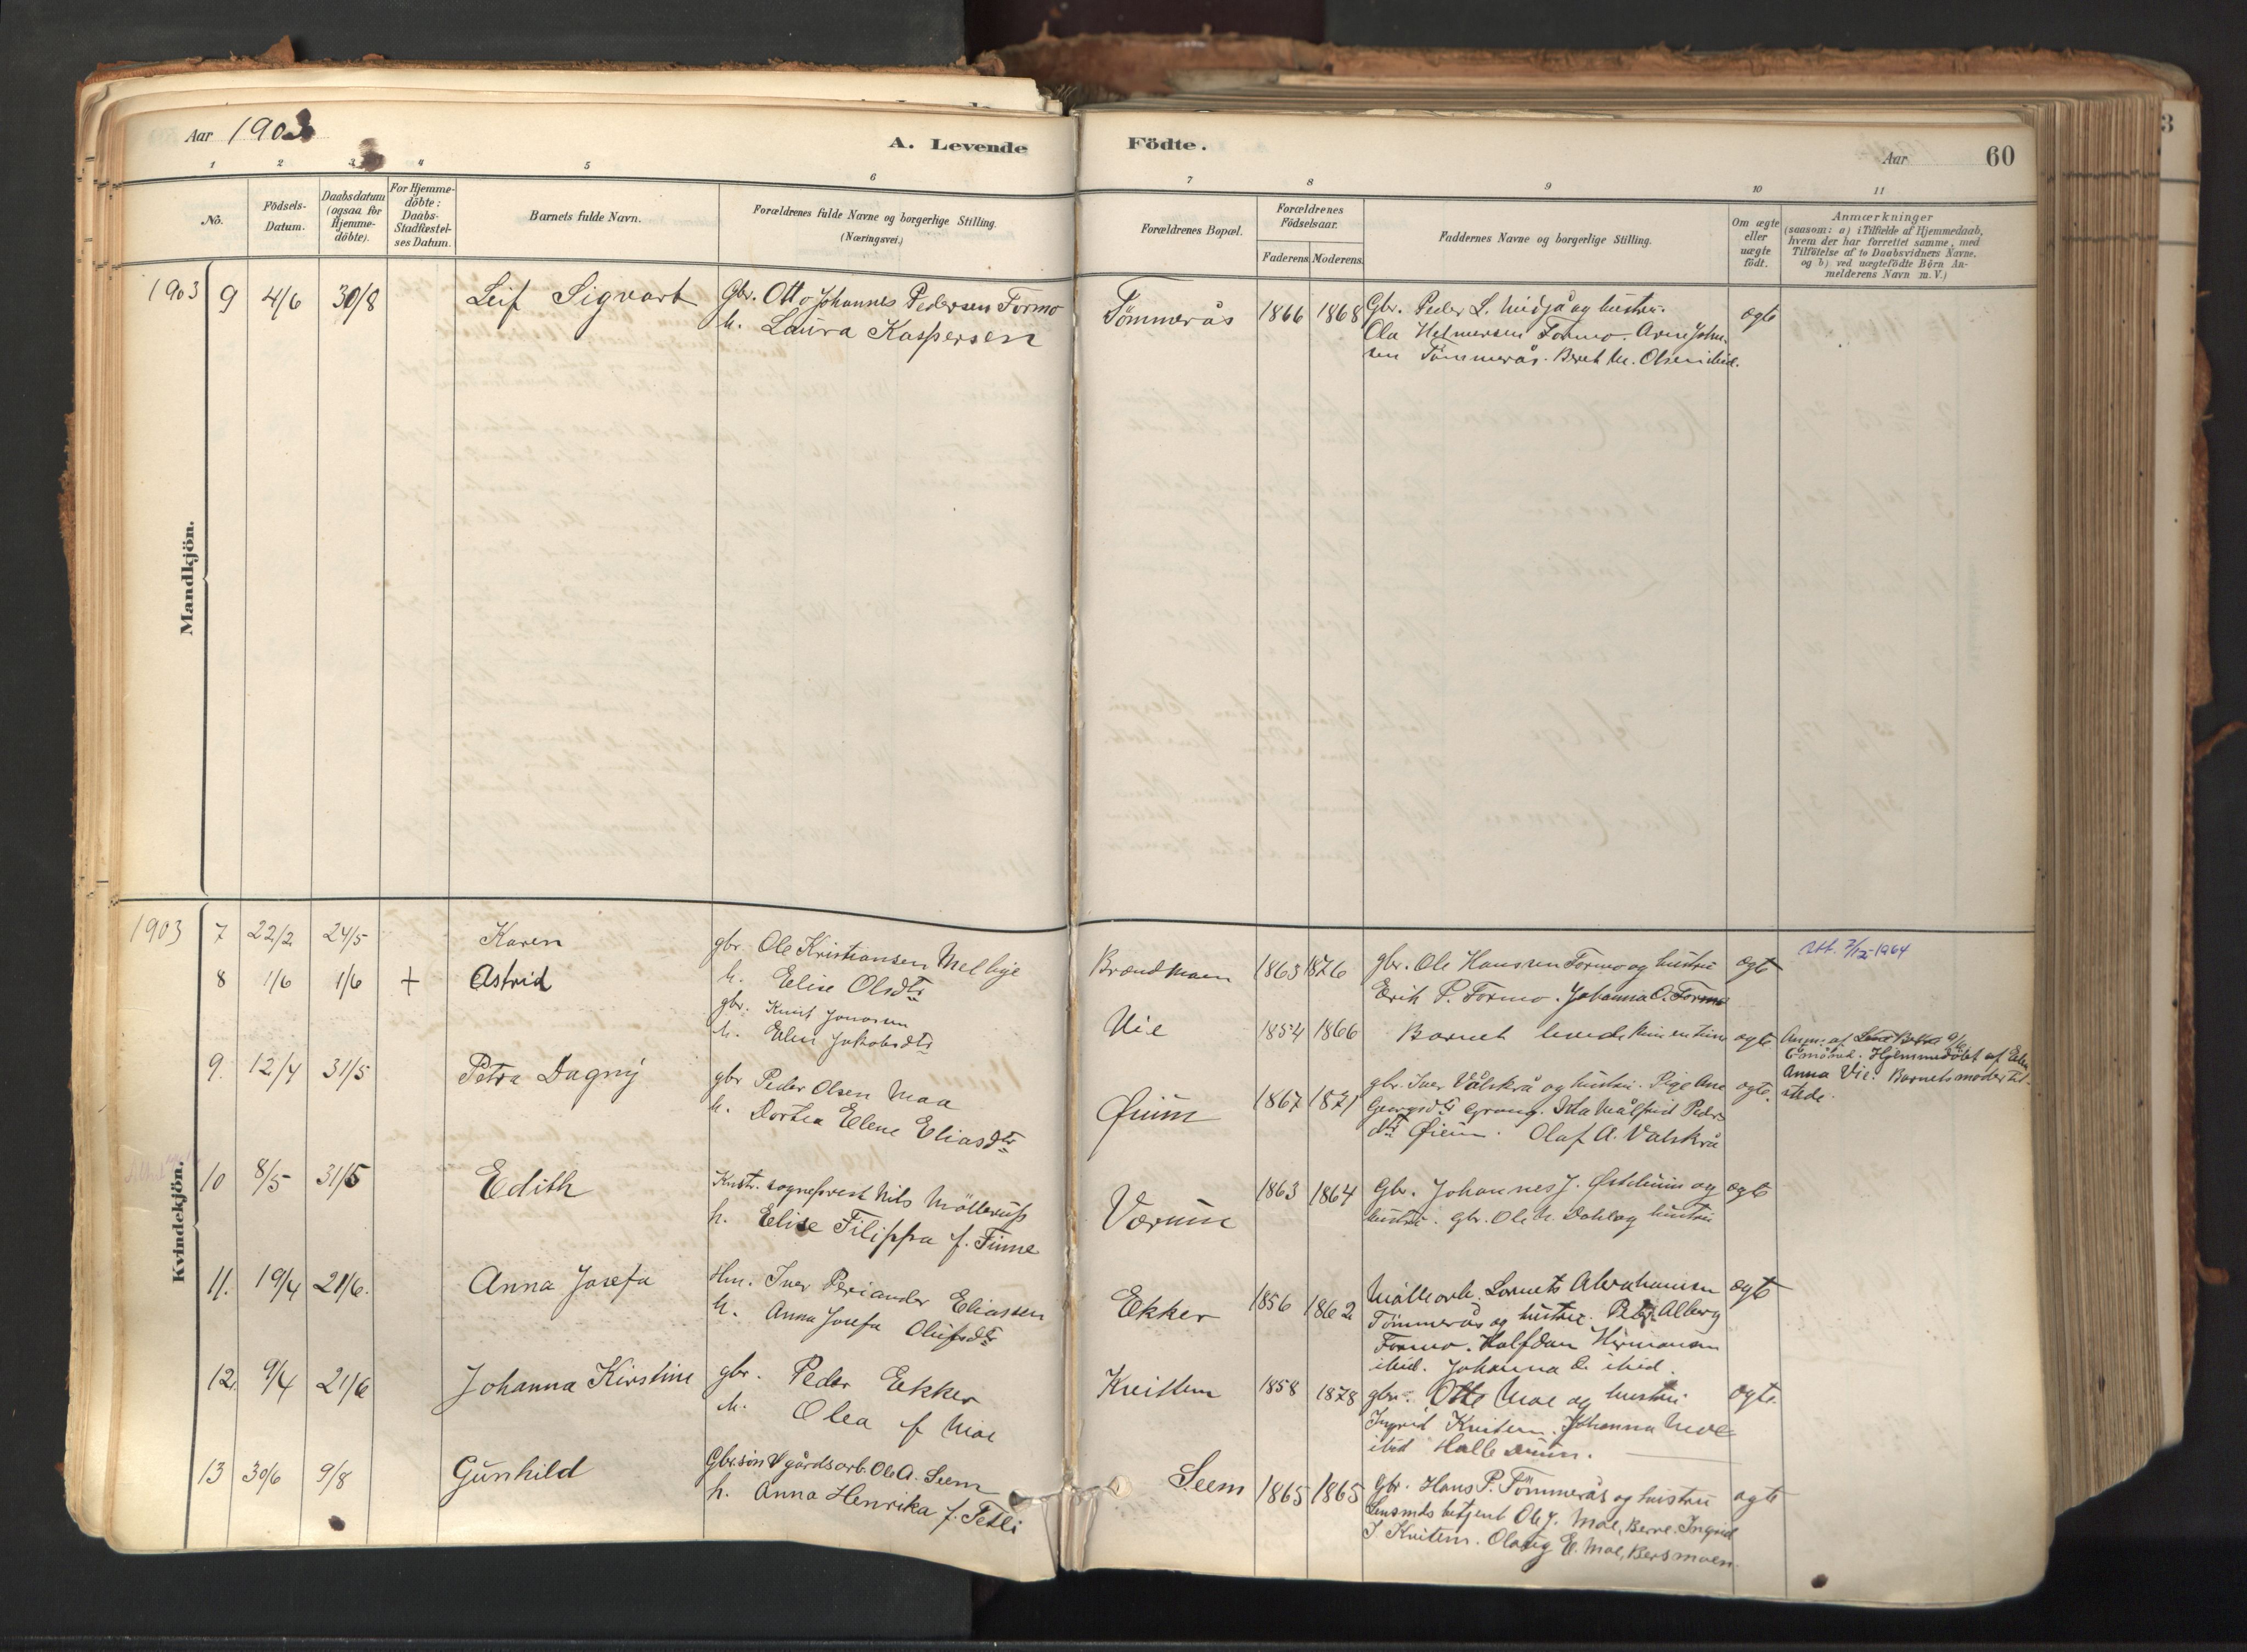 Aar 1903
A. Levende
Födte.
Aar
60
3
1
2
3
4
5
6
7
8
9
10
11
No.
Födsels-
Datum.
Daabsdatum
(ogsaa for
Hjemme-
döbte).
For Hjemme-
döbte:
Daabs-
Stadfæstel-
ses Datum.
Barnets fulde Navn.
Forældrenes fulde Navne og borgerlige Stilling.
(Næringsvei.)
Forældrenes Bopæl.
Forældrenes
Födselsaar.
Faderens
Moderens.
Faddernes Navne og borgerlige Stilling.
Om ægte
eller
uægte
födt.
Anmærkninger
(saasom: a) i Tilfælde af Hjemmedaab,
hvem der har forrettet samme, med
Tilföielse af to Daabsvidners Navne.
og b) ved uægtefödte Börn An-
melderens Navn m. V.)
Mandkjön.
1903 9 4/6 30/8 Leif Sigvart
Gbr. Otto Johannes Pedersen Formo
h. Laura Kaspersen
Tömmerås 1866 1868
Gbr. Peder L. og hustru.
Ola Helmersen Formo. Arne John-
sen Tömmerås. Beret M. Olsen ibid.
ægte
Kvindekjön.
1903 7 22/2 24/5 Karen
gbr. Ole Kristiansen Melhye
h. Elise Olsdtr
Brændmoen 1863 1876
gbr. Ole Hansen Formo og hustru
Erik P. Formo. Johanna O. Formo
ægte
7/12-1964
8 1/6 1/6 + Astrid
gbr. Knut Jonasen
h. Elen Jakobsdtr
Vie 1854 1866
Barnet levede kun en time
ægte
Anm: af
Hjemmedöbt af
Anna Vie. Barnets moder til-
stede.
9. 12/4 31/5 Petra Dagny
gbr Peder Olsen Moa
h. Dortea Elene Eliasdtr
Øiüm 1867 1871
gbr. Iver Valskrå og hustru. Pige Ane
Georgsdtr Grong. Ida Målfrid Peders-
dtr Øieum. Olaf A. Valskrå
ægte.
10 8/5 31/5 Edith
Konst. sogneprest Nils Möllerup
h. Elise Filippa f. Finne
Værum 1863 1864
Gbr. Johannes J. Østerum og
hustru. gbr. Ole M. Dahl og hustru
ægte
11. 19/4 21/6. Anna Josefa
Hm. Iver Periander Eliassen
h. Anna Josefa Olufsdtr
Ekker 1856 1862
Mölleorb. Lornts Abrahamsen
Tömmerås og hustru. Peter Alberg
Formo. Halfdan Hermansen
ibid. Johanna O. ibid.
ægte
12. 9/4 21/6 Johanna Kirstine
gbr. Peder Ekker
h. Olea f Moe
Kveitem 1858 1878
gbr. Otte Moe og hustru
Ingrid Kvitem. Johanna Moe
ibid Halle Duun.
ægte.
13 30/6 9/8 Gunhild
Gbr.sön & gårdsarb. Ole A. Seem
h. Anna Henrika f. Tetli
Seem 1865 1865
Gbr. Hans P. Tömmerås og hustru
Lensmds betjent Ole J. Moe, Berre. Ingrid
J Kvitem. Olaug E. Moe, Bersmoen.
ægte